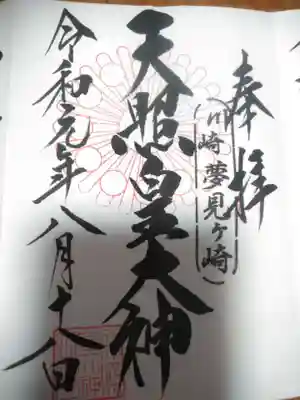 奉拝
(川崎 夢見ヶ崎)
天照皇大神
令和元年八月十八日